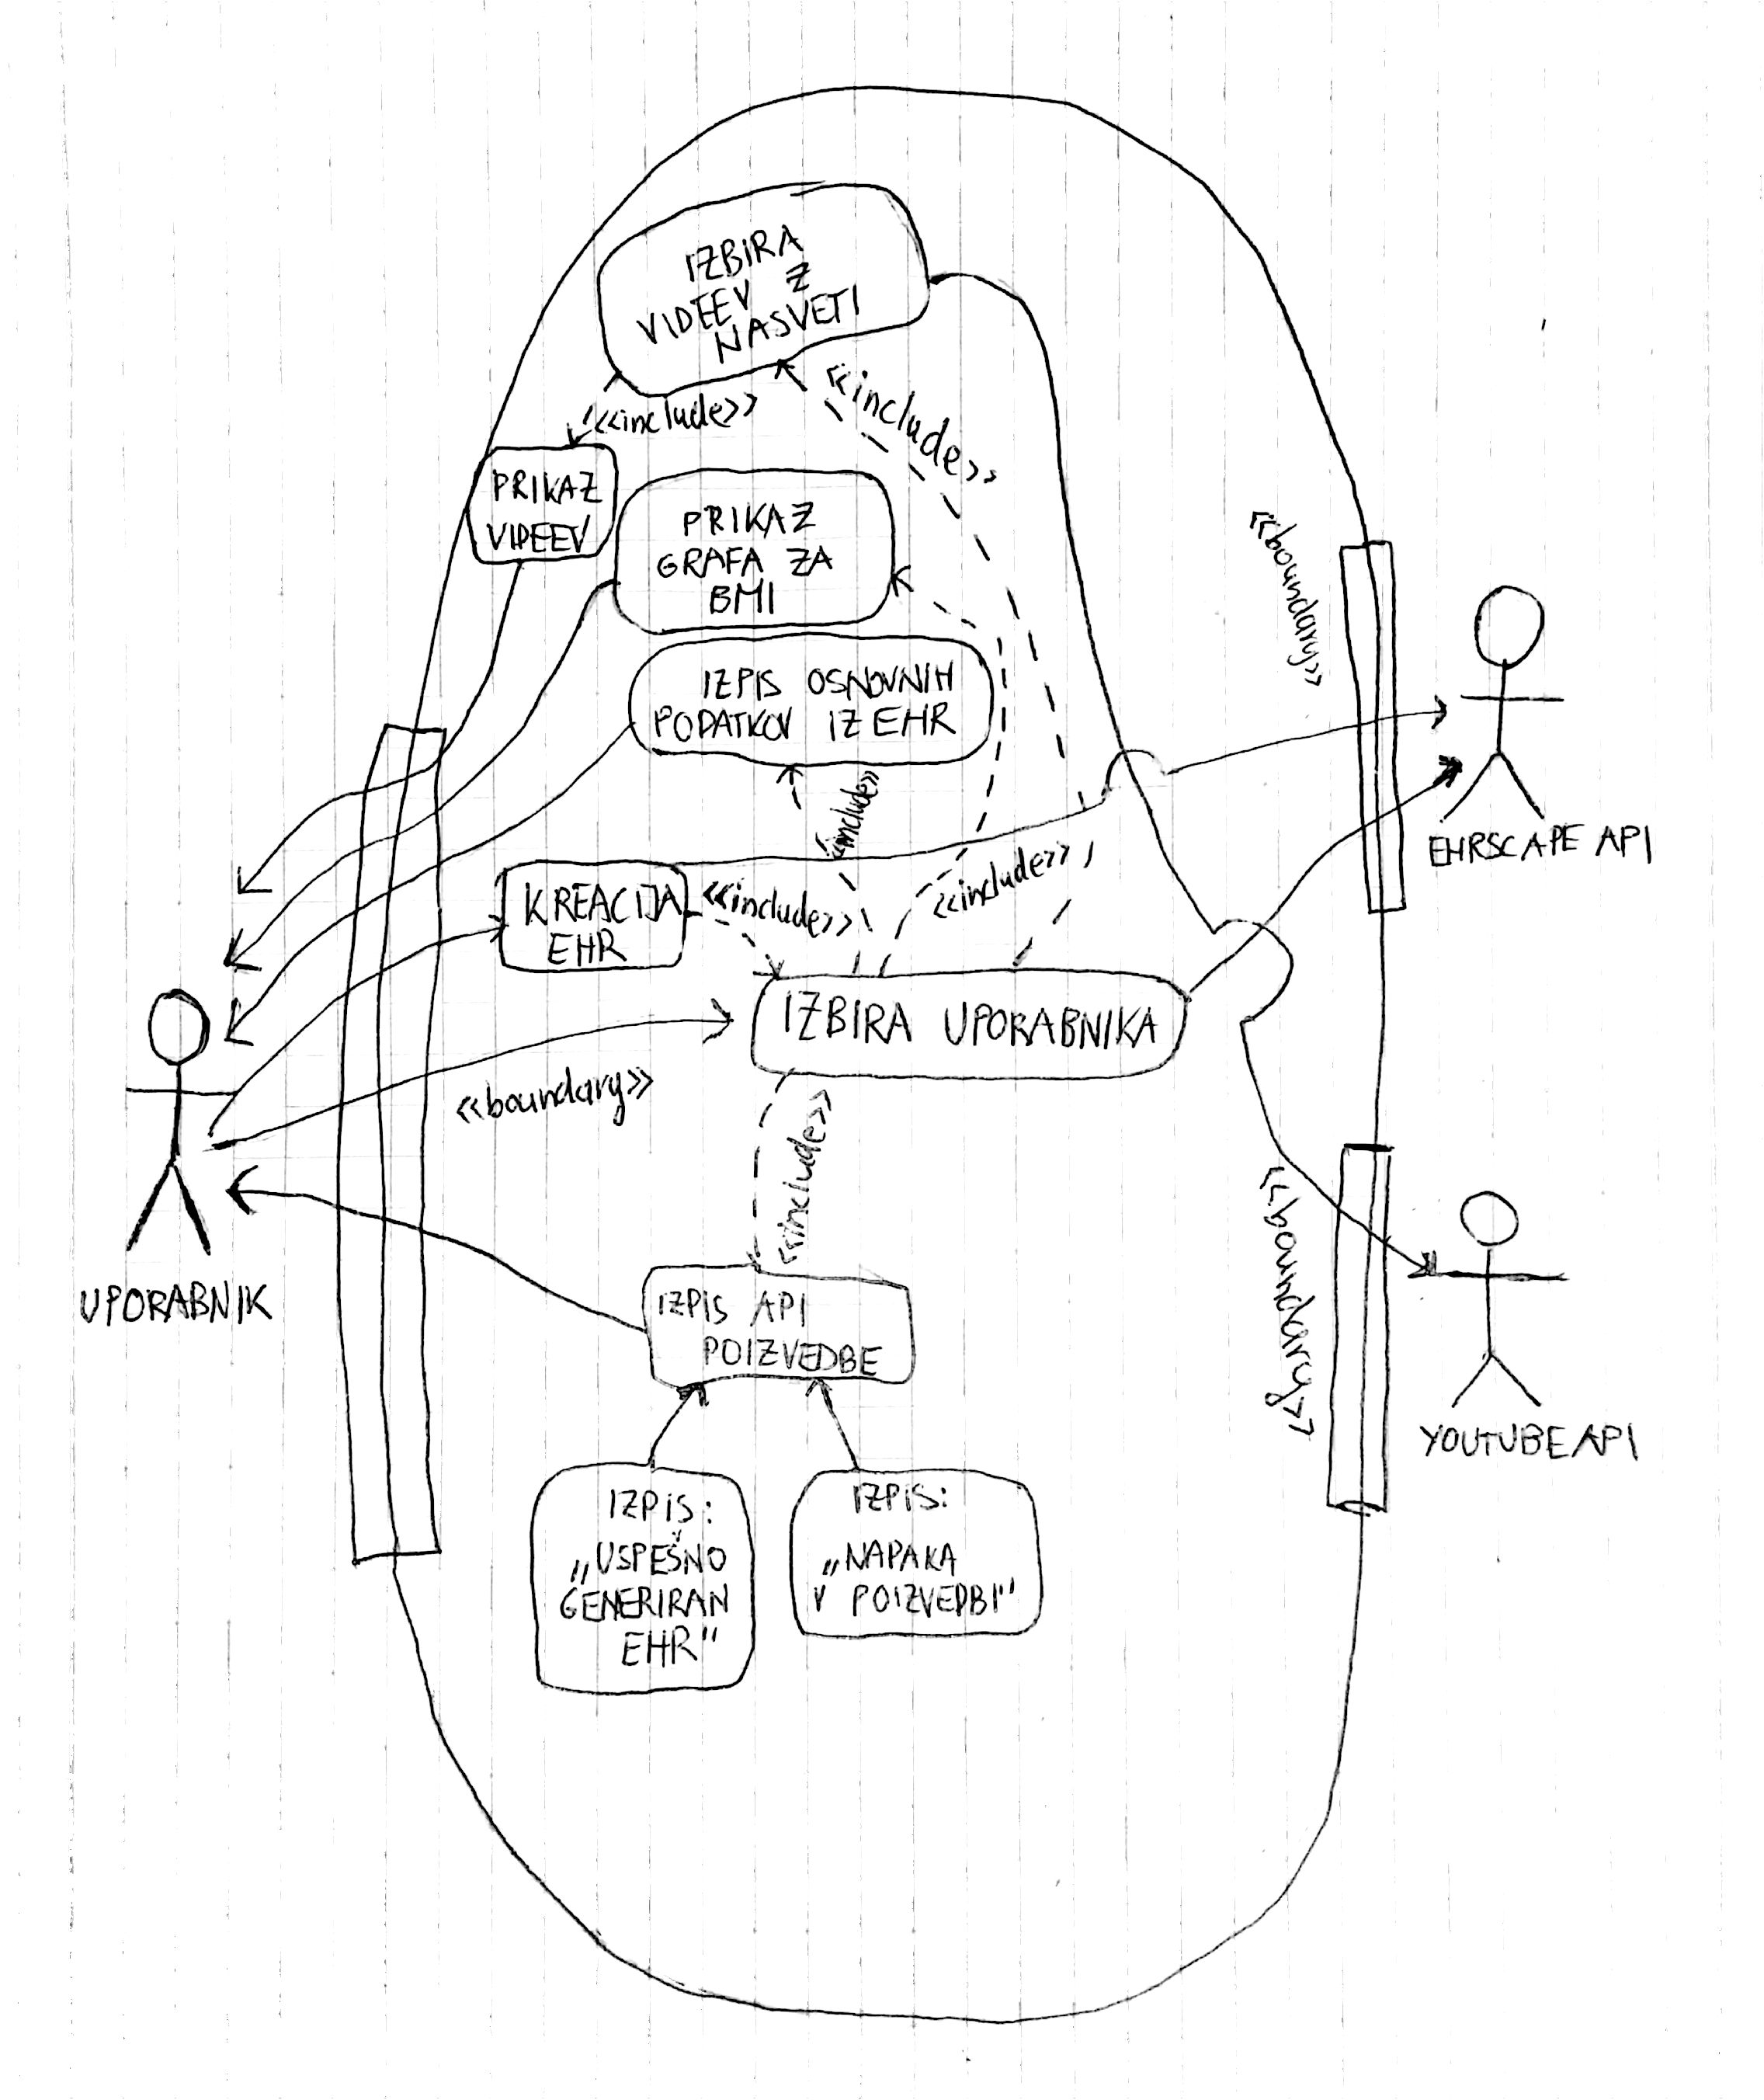 IZBIRA
VIDEEV Z
NASVETI
<<include>>
<<include>>
PRIKAZ
VIDEEV
PRIKAZ
GRAFA ZA
BMI
<<boundary>>
IZPIS OSNOVNIH
PODATKOV IZ EHR
<<include>>
EHRSCAPE API
KREACIJA
EHR
<<include>>
<<include>>
IZBIRA UPORABNIKA
<<boundary>>
<<include>>
UPORABNIK
<<boundary>>
IZPIS API
POIZVEDBE
YOUTUBE API
IZPIS:
„USPEŠNO
GENERIRAN
EHR"
IZPIS:
„NAPAKA
V POIZVEDBI"